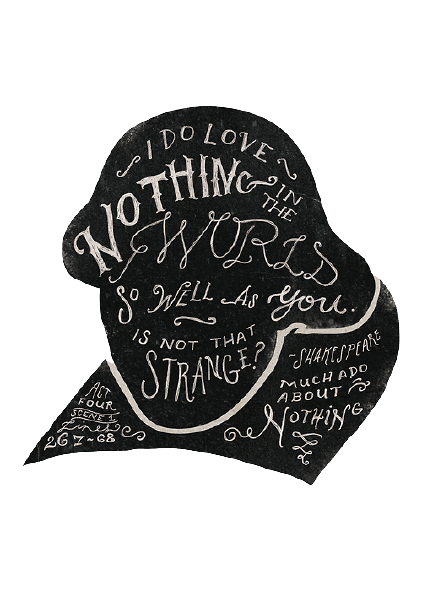 ~ I DO LOVE ~
NOTHING IN
THE
WORLD
SO WELL AS you.
IS NOT THAT
STRANGE?
~SHAKESPEARE
MUCH ADO
ABOUT
NOTHING
ACT
FOUR
SCENE 1
Lines
267~68